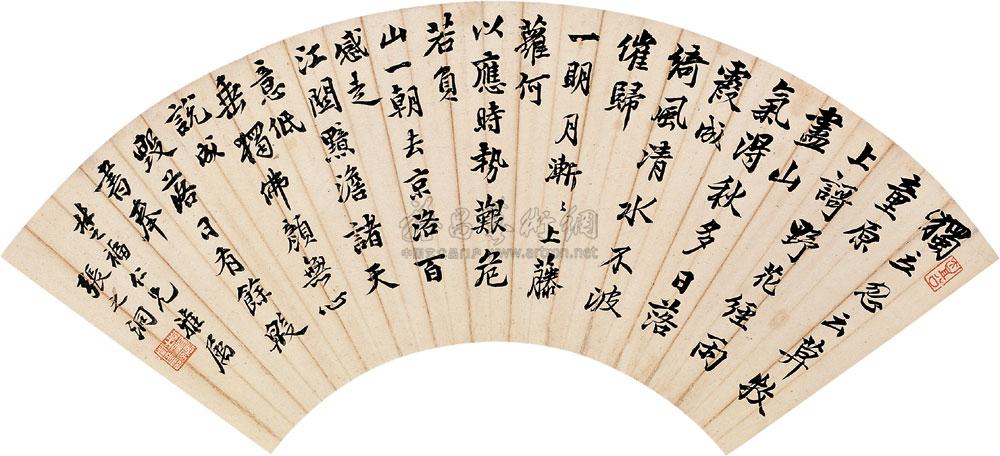 獨立忽云莫牧
童原
上謌野花經雨
盡山
氣得秋多日落
霞成
綺風清水不波
催歸
一明月漸〻上藤
蘿何
以應時勢艱危
若負
山一朝去京洛百
感走
江關黯澹諸天
意低
垂獨佛顏無心
說成
毀落日有餘殷
書奉
福仁兄雅屬
張之洞